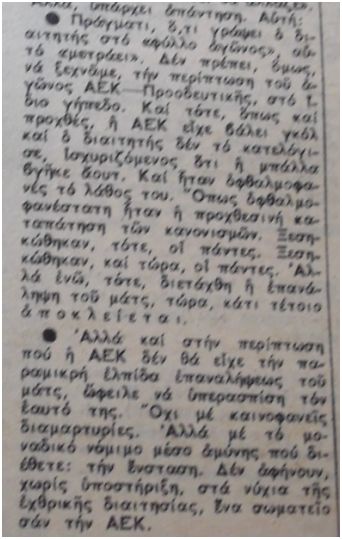 Ἀλλά, ὑπάρχει ἀπάντηση. Αὐτή:
● Πράγματι, ὅ,τι γράψει ὁ δι-
αιτητής στό «φύλλο ἀγῶνος», αὐ-
τό «μετράει». Δέν πρέπει, ὅμως,
νά ξεχνᾶμε, τήν περίπτωση τοῦ ἀ-
γῶνος ΑΕΚ—Προοδευτικῆς, στό ἴ-
διο γήπεδο. Καί τότε, ὅπως καί
προχθές, ἡ ΑΕΚ εἶχε βάλει γκόλ
καί ὁ διαιτητής δέν τό κατελόγι-
σε, ἰσχυριζόμενος ὅτι ἡ μπάλλα
βγῆκε ἄουτ. Καί ἦταν ὀφθαλμοφα-
νές τό λάθος του. Ὅπως ὀφθαλμο-
φανέστατη ἦταν ἡ προχθεσινή κα-
ταπάτηση τῶν κανονισμῶν. Ξεση-
κώθηκαν, τότε, οἱ πάντες. Ξεση-
κώθηκαν, καί τώρα, οἱ πάντες. Ἀλ-
λά ἐνῶ, τότε, διετάχθη ἡ ἐπανά-
ληψη τοῦ μάτς, τώρα, κάτι τέτοιο
ἀποκλείεται.
● Ἀλλά καί στήν περίπτωση
πού ἡ ΑΕΚ δέν θά εἶχε τήν πα-
ραμικρή ἐλπίδα ἐπαναλήψεως τοῦ
μάτς, ὤφειλε νά ὑπερασπίση τόν
ἑαυτό της. Ὄχι μέ καινοφανεῖς
διαμαρτυρίες. Ἀλλά μέ τό μο-
ναδικό νόμιμο μέσο ἀμύνης πού δι-
έθετε: τήν ἔνσταση. Δέν ἀφήνουν,
χωρίς ὑποστήριξη, στά νύχια τῆς
ἐχθρικῆς διαιτησίας, ἕνα σωματεῖο
σάν τήν ΑΕΚ.